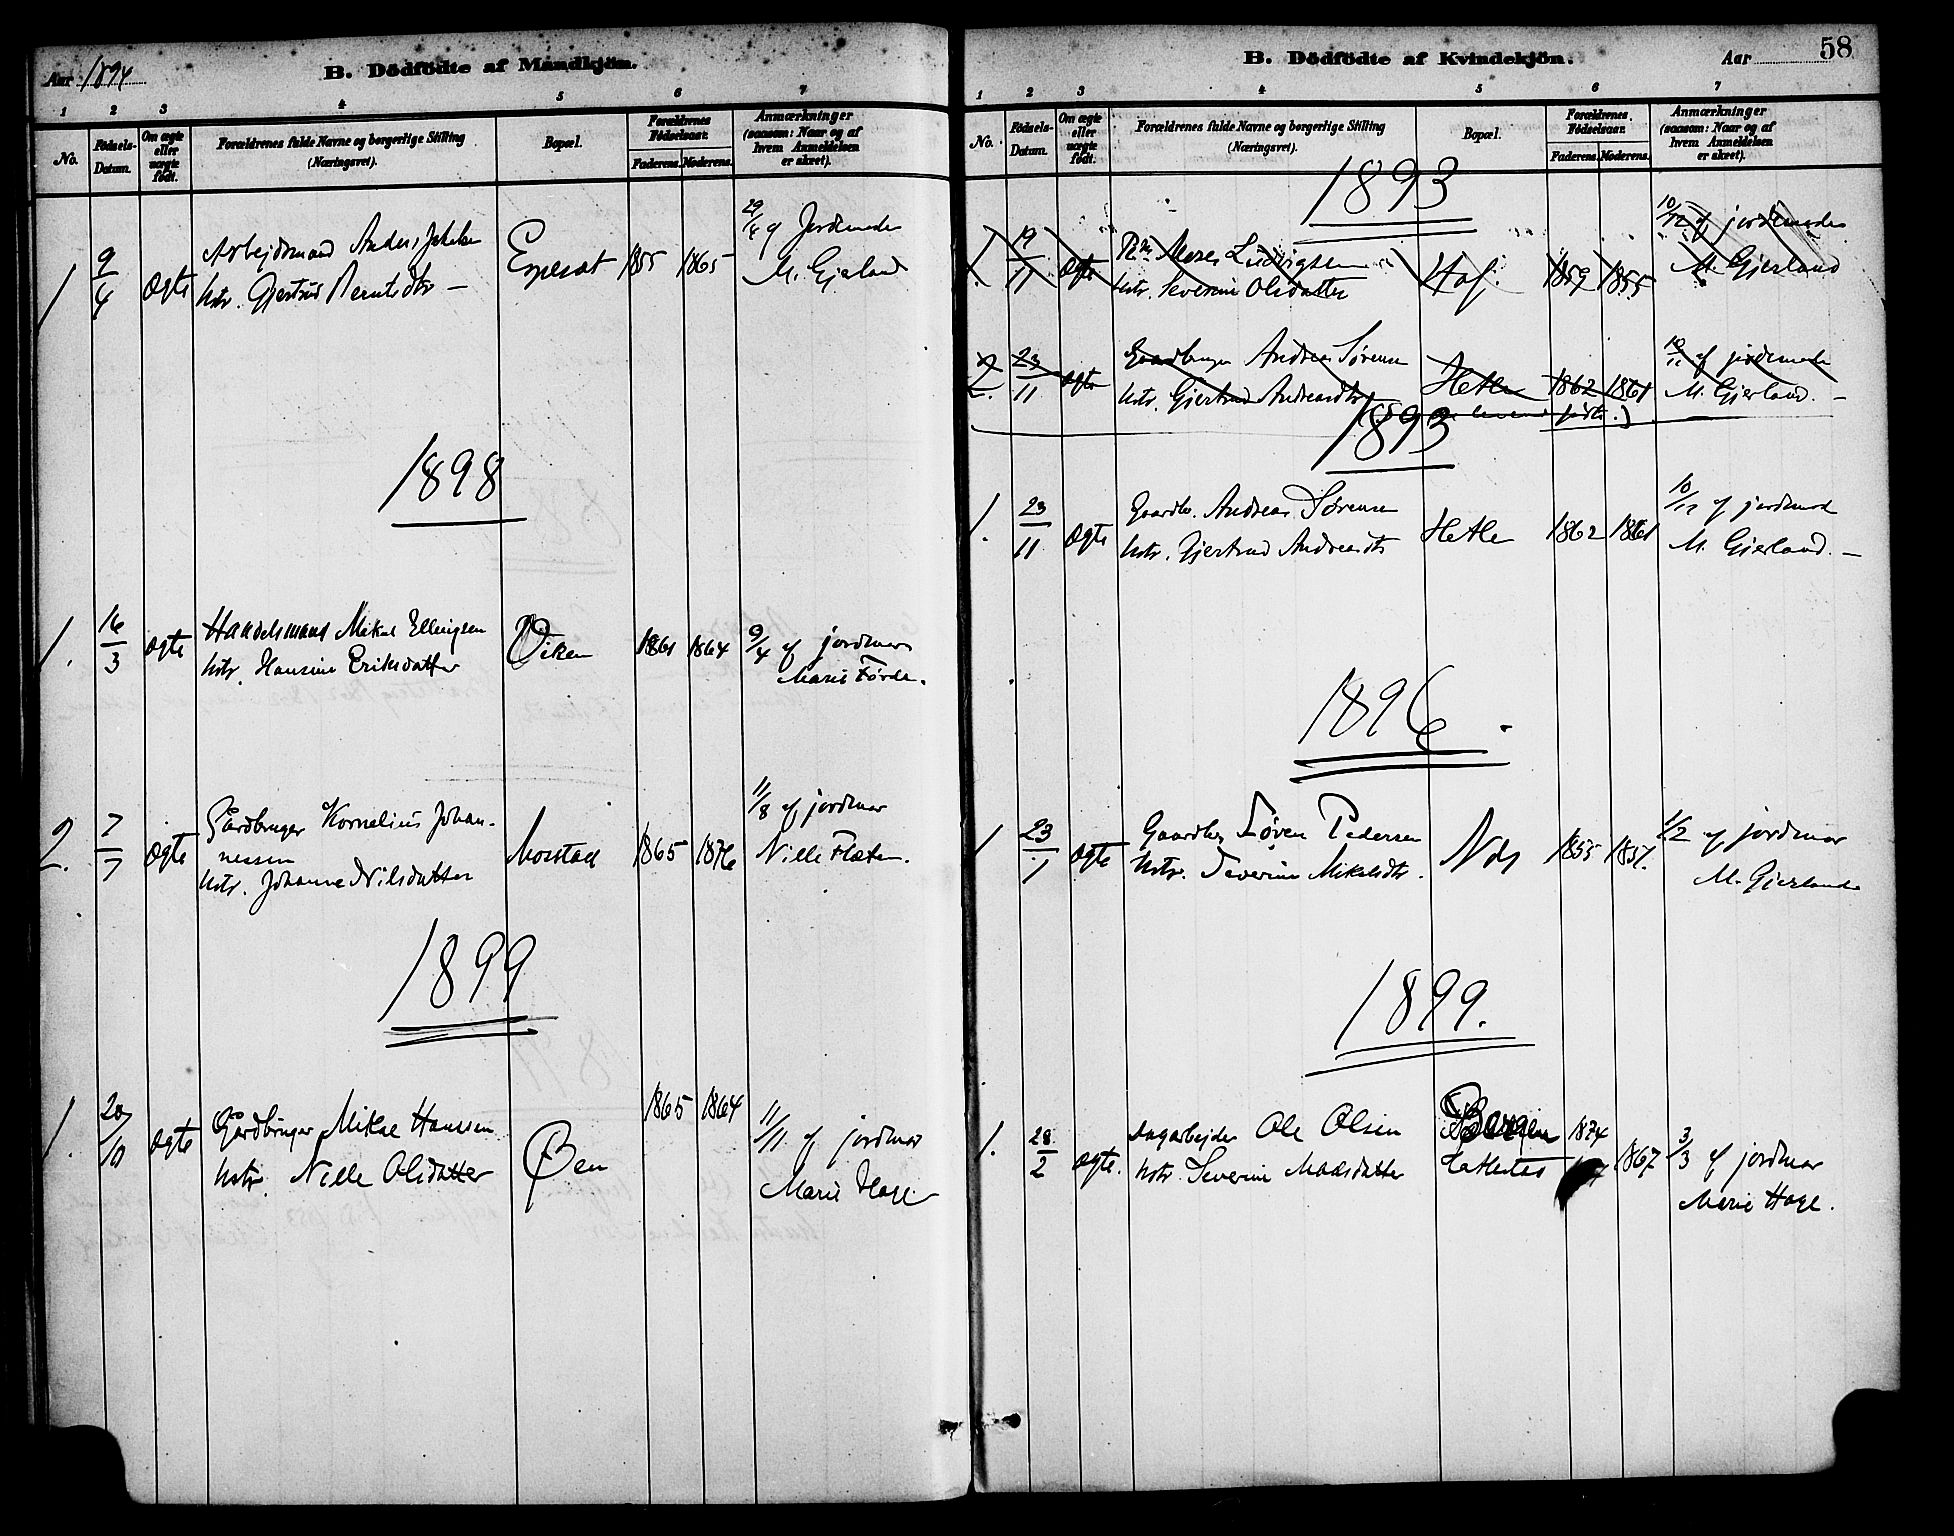 Aar 1894
B. Dödfödte af Mandkjön.
1 2 3 4 5 6 7
No.
Födsels-Datum.
Om ægte eller uægte födt.
Forældrenes fulde Navne og borgerlige Stilling
(Næringsvei).
Bopæl.
Forældrenes Födselsaar.
Faderens. Moderens.
Anmærkninger
(saasom: Naar og af
hvem Anmeldelsen
er skeet).
1 9/4 Ægte
Arbejdsmand Anders
hstr. Gjertrud Berntsdtr –
1855 1865
29/4 af Jordemoder
M. Gjerland
1898
1. 16/3 ægte
Handelsmand Mikal Ellingsen
hstr. Hansine Eriksdatter
Viken 1861 1864
9/4 af jordmor
Marie Førde.
2. 7/7 Ægte
Gårdbruger Kornelius Johan-
nessen
hstr. Johanne Nilsdatter
1865 1876
11/8 af jordmor
Nille Flaten.
1899
1. 20/10 ægte
Gårdbruger Mikal Hanssen
hstr. Nille Olsdatter
Øen
1865 1864
11/11 af jordmor
Marie Hage
58
B. Dödfödte af Kvindekjön.
Aar
1 2 3 4 5 6 7
No.
Födsels-Datum.
Om ægte eller uægte födt.
Forældrenes fulde Navne og borgerlige Stilling
(Næringsvei).
Bopæl.
Forældrenes Födselsaar.
Faderens. Moderens.
Anmærkninger
(saasom: Naar og af
hvem Anmeldelsen
er skeet).
1893
1. 19/11 ægte
Ludvigsen
hstr. Severine Olsdatter
Hof. 1859 1855
10/12 af jordemoder
M. Gjerland
2. 23/11 ægte
Gaardbruger Andreas Sørensen
hstr. Gjertrud Andreasdtr
Hetle 1862 1861
af jordemoder
M. Gjerland. –
1893
1. 23/11 Ægte
Gaardbr. Andreas Sørensen
hstr. Gjertrud Andreasdtr
Hetle 1862 1861
10/12 af jordmoder
M. Gjerland. –
1896.
1 23/1 ægte
Gaardbr. Søren Pedersen
hstr. Severine Mikelsdtr.
1855 1857.
1/2 af jordmor
M. Gjerland
1899.
1. 28/2 ægte.
Dagarbejder Ole Olsen
hstr. Severine Madsdatter
Bergen
1874
1867
3/3 af jordmor
Marie Hage.